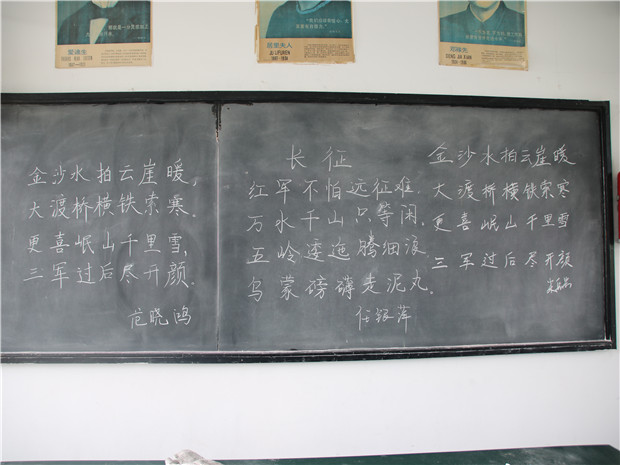 金沙水拍云崖暖,
大渡桥横铁索寒.
更喜岷山千里雪,
三军过后尽开颜.
范晓鸿
长征
红军不怕远征难.
万水千山只等闲.
五岭逶迤腾细浪.
乌蒙磅礴走泥丸.
任银萍
金沙水拍云崖暖
大渡桥横铁索寒
更喜岷山千里雪
三军过后尽开颜